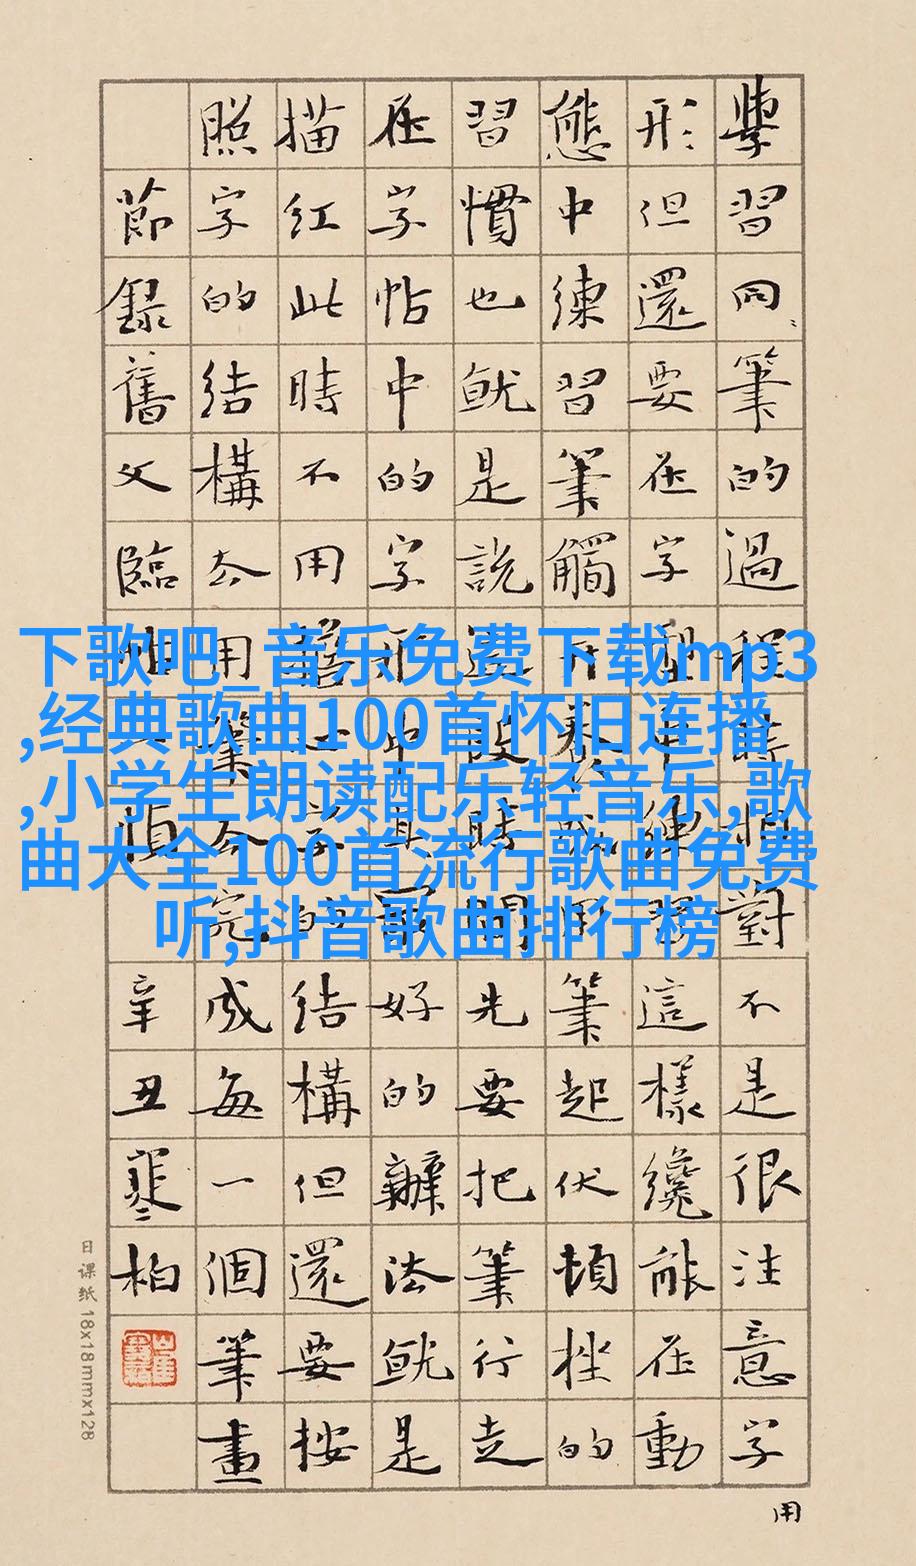 學習同筆的過程時對不是很注意字
形但還要在字型中練習這樣纔能在動
態中練習筆觸用筆起伏頓挫的
習慣也就是說這段時間先要把筆行走
在字帖中的字好的辦法就是
描紅此時不用字的結構但還要按
照字的結構去用筆完成每一個筆畫
節錄舊文臨帖
辛丑寒柏
用
日课纸 18x18mmx128
下歌吧_音乐免费下载mp3
,经典歌曲100首怀旧连播
,小学生朗读配乐轻音乐,歌
曲大全100首流行歌曲免费
听,抖音歌曲排行榜